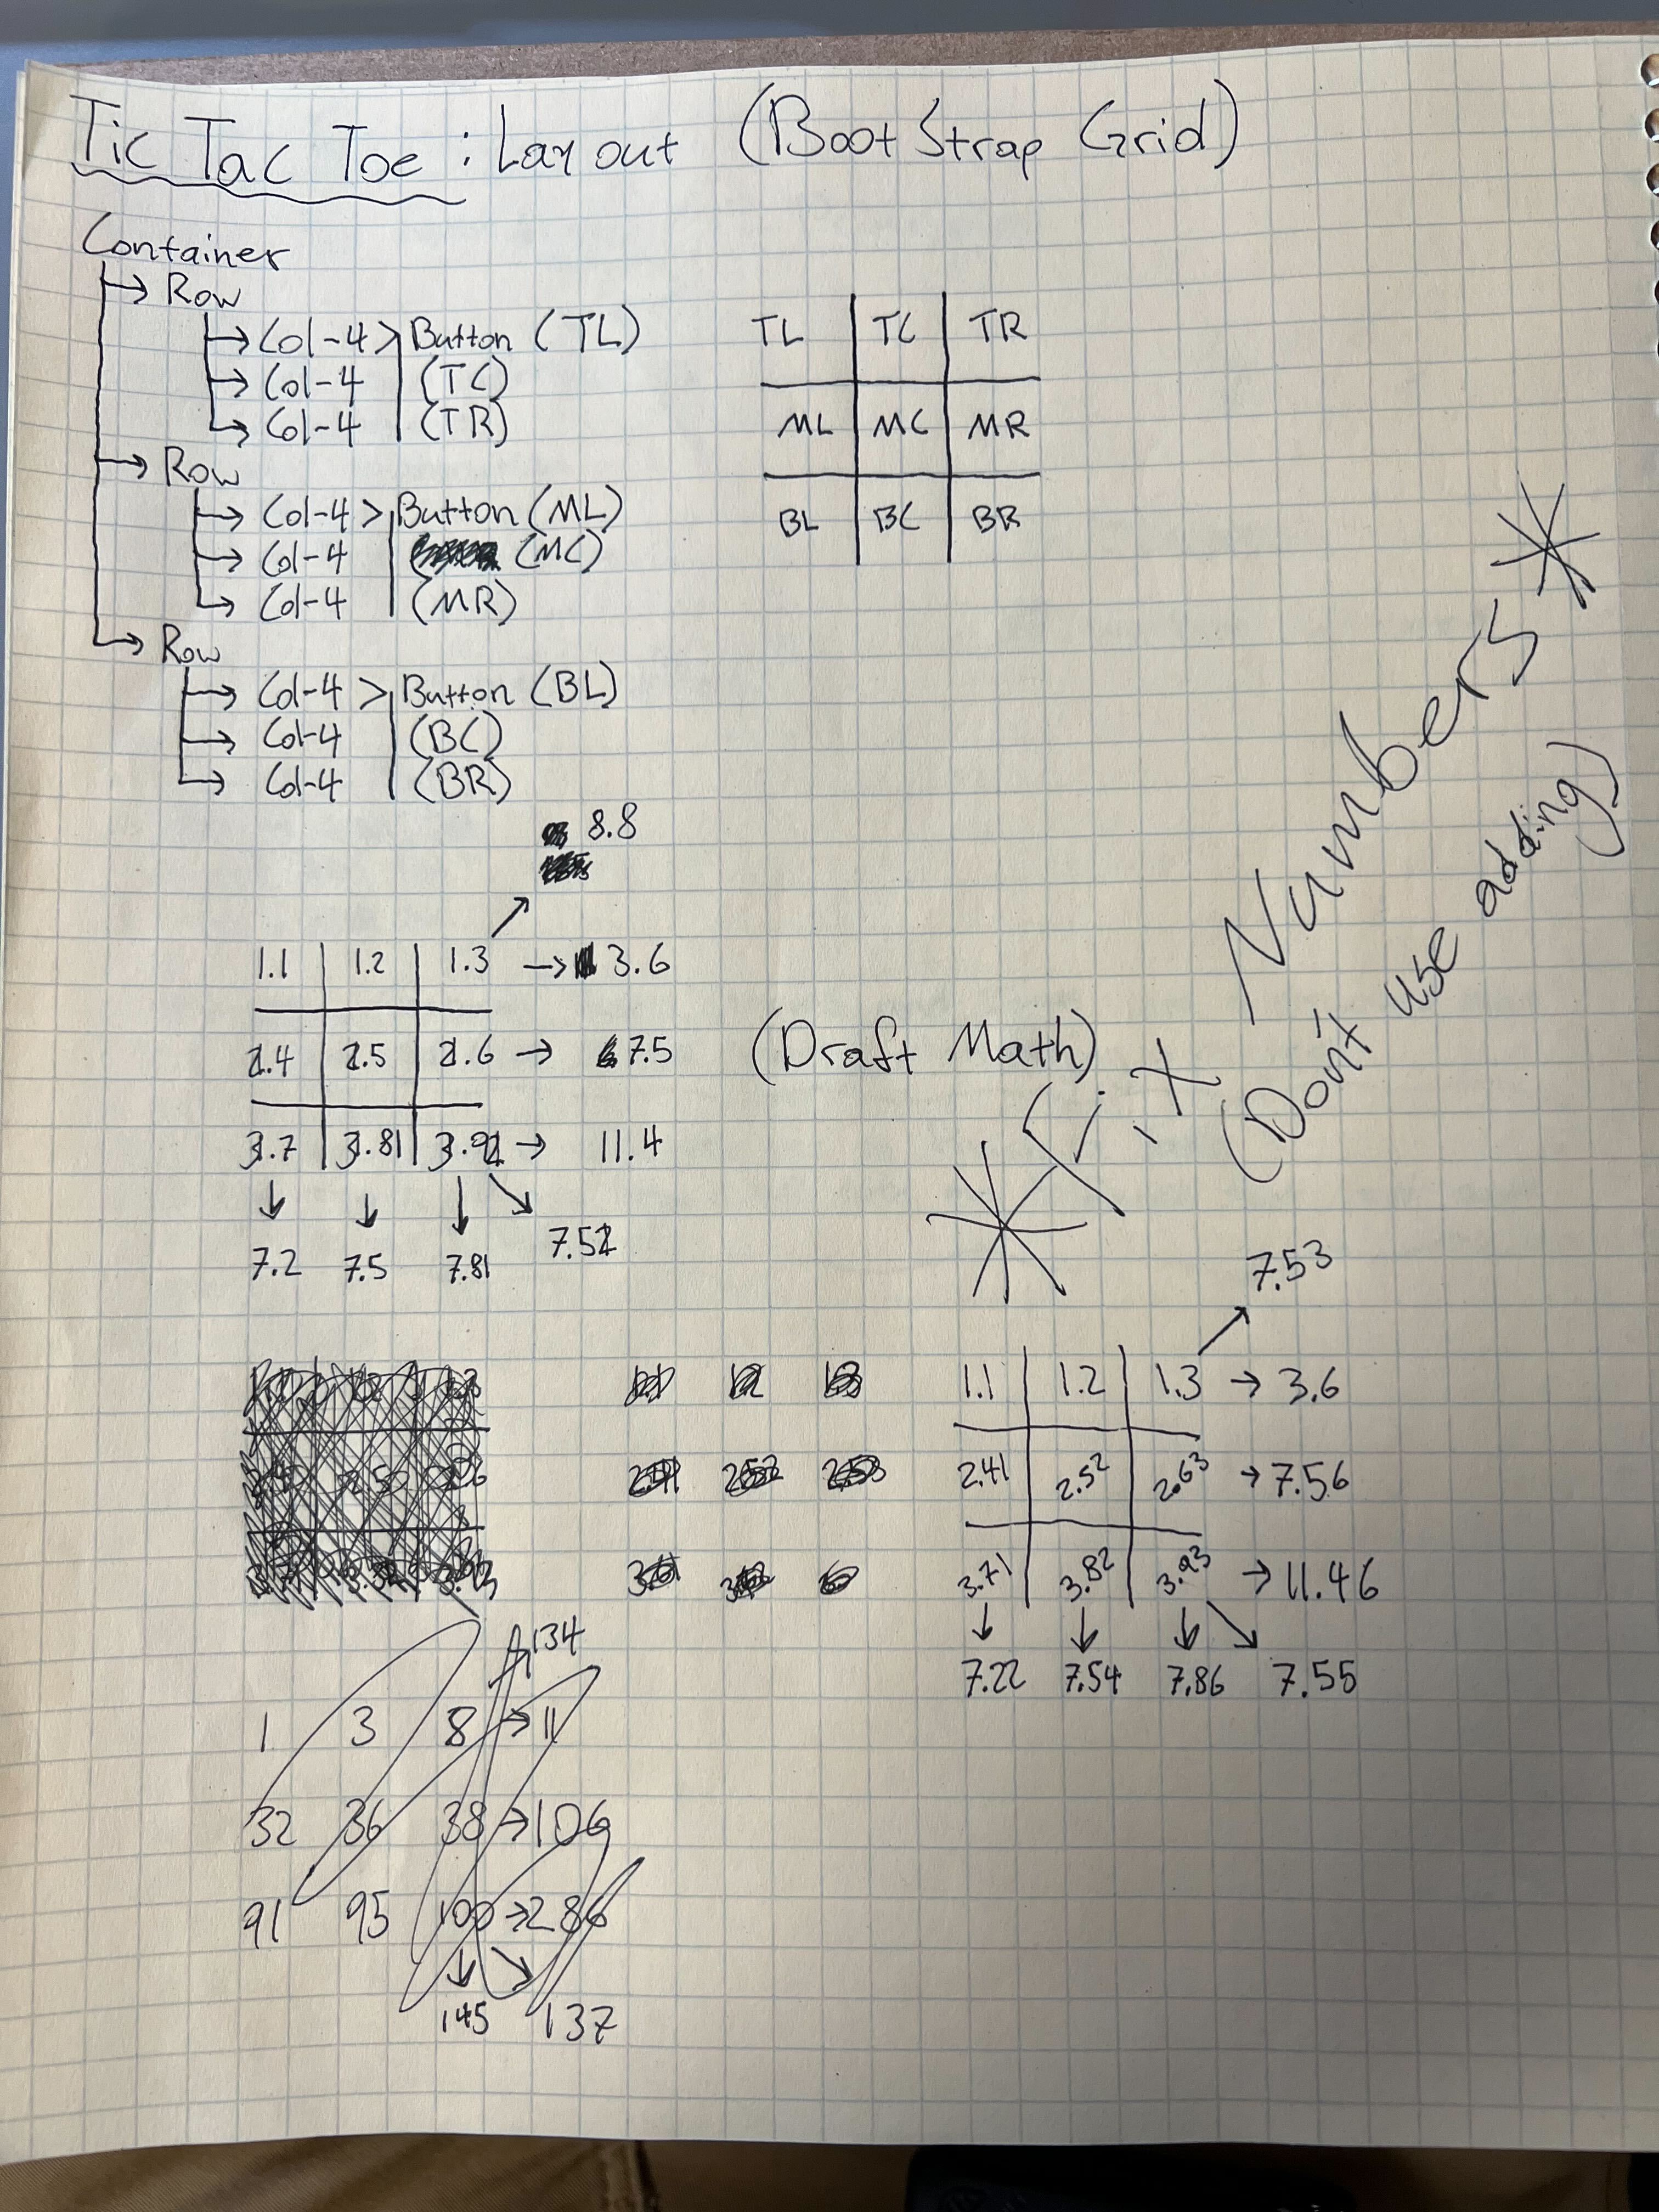 Tic Tac Toe : Layout (BootStrap Grid)
Container
Row
Col-4 > Button (TL)
Col-4 (TC)
Col-4 (TR)
Row
Col-4 > Button (ML)
Col-4 (MC)
Col-4 (MR)
Row
Col-4 > Button (BL)
Col-4 (BC)
Col-4 (BR)
TL TC TR
ML MC MR
BL BC BR
8.8
1.1 1.2 1.3 → 3.6
2.4 2.5 2.6 → 7.5
3.7 3.81 3.92 → 11.4
7.2 7.5 7.81 7.52
(Draft Math)
Numbers
(Don't use adding)
7.53
1.1 1.2 1.3 → 3.6
2.41 2.52 2.63 → 7.56
3.71 3.82 3.93 → 11.46
7.22 7.54 7.86 7.55
134
1 3 8 → 11
32 36 38 → 106
91 95 100 → 286
145 137